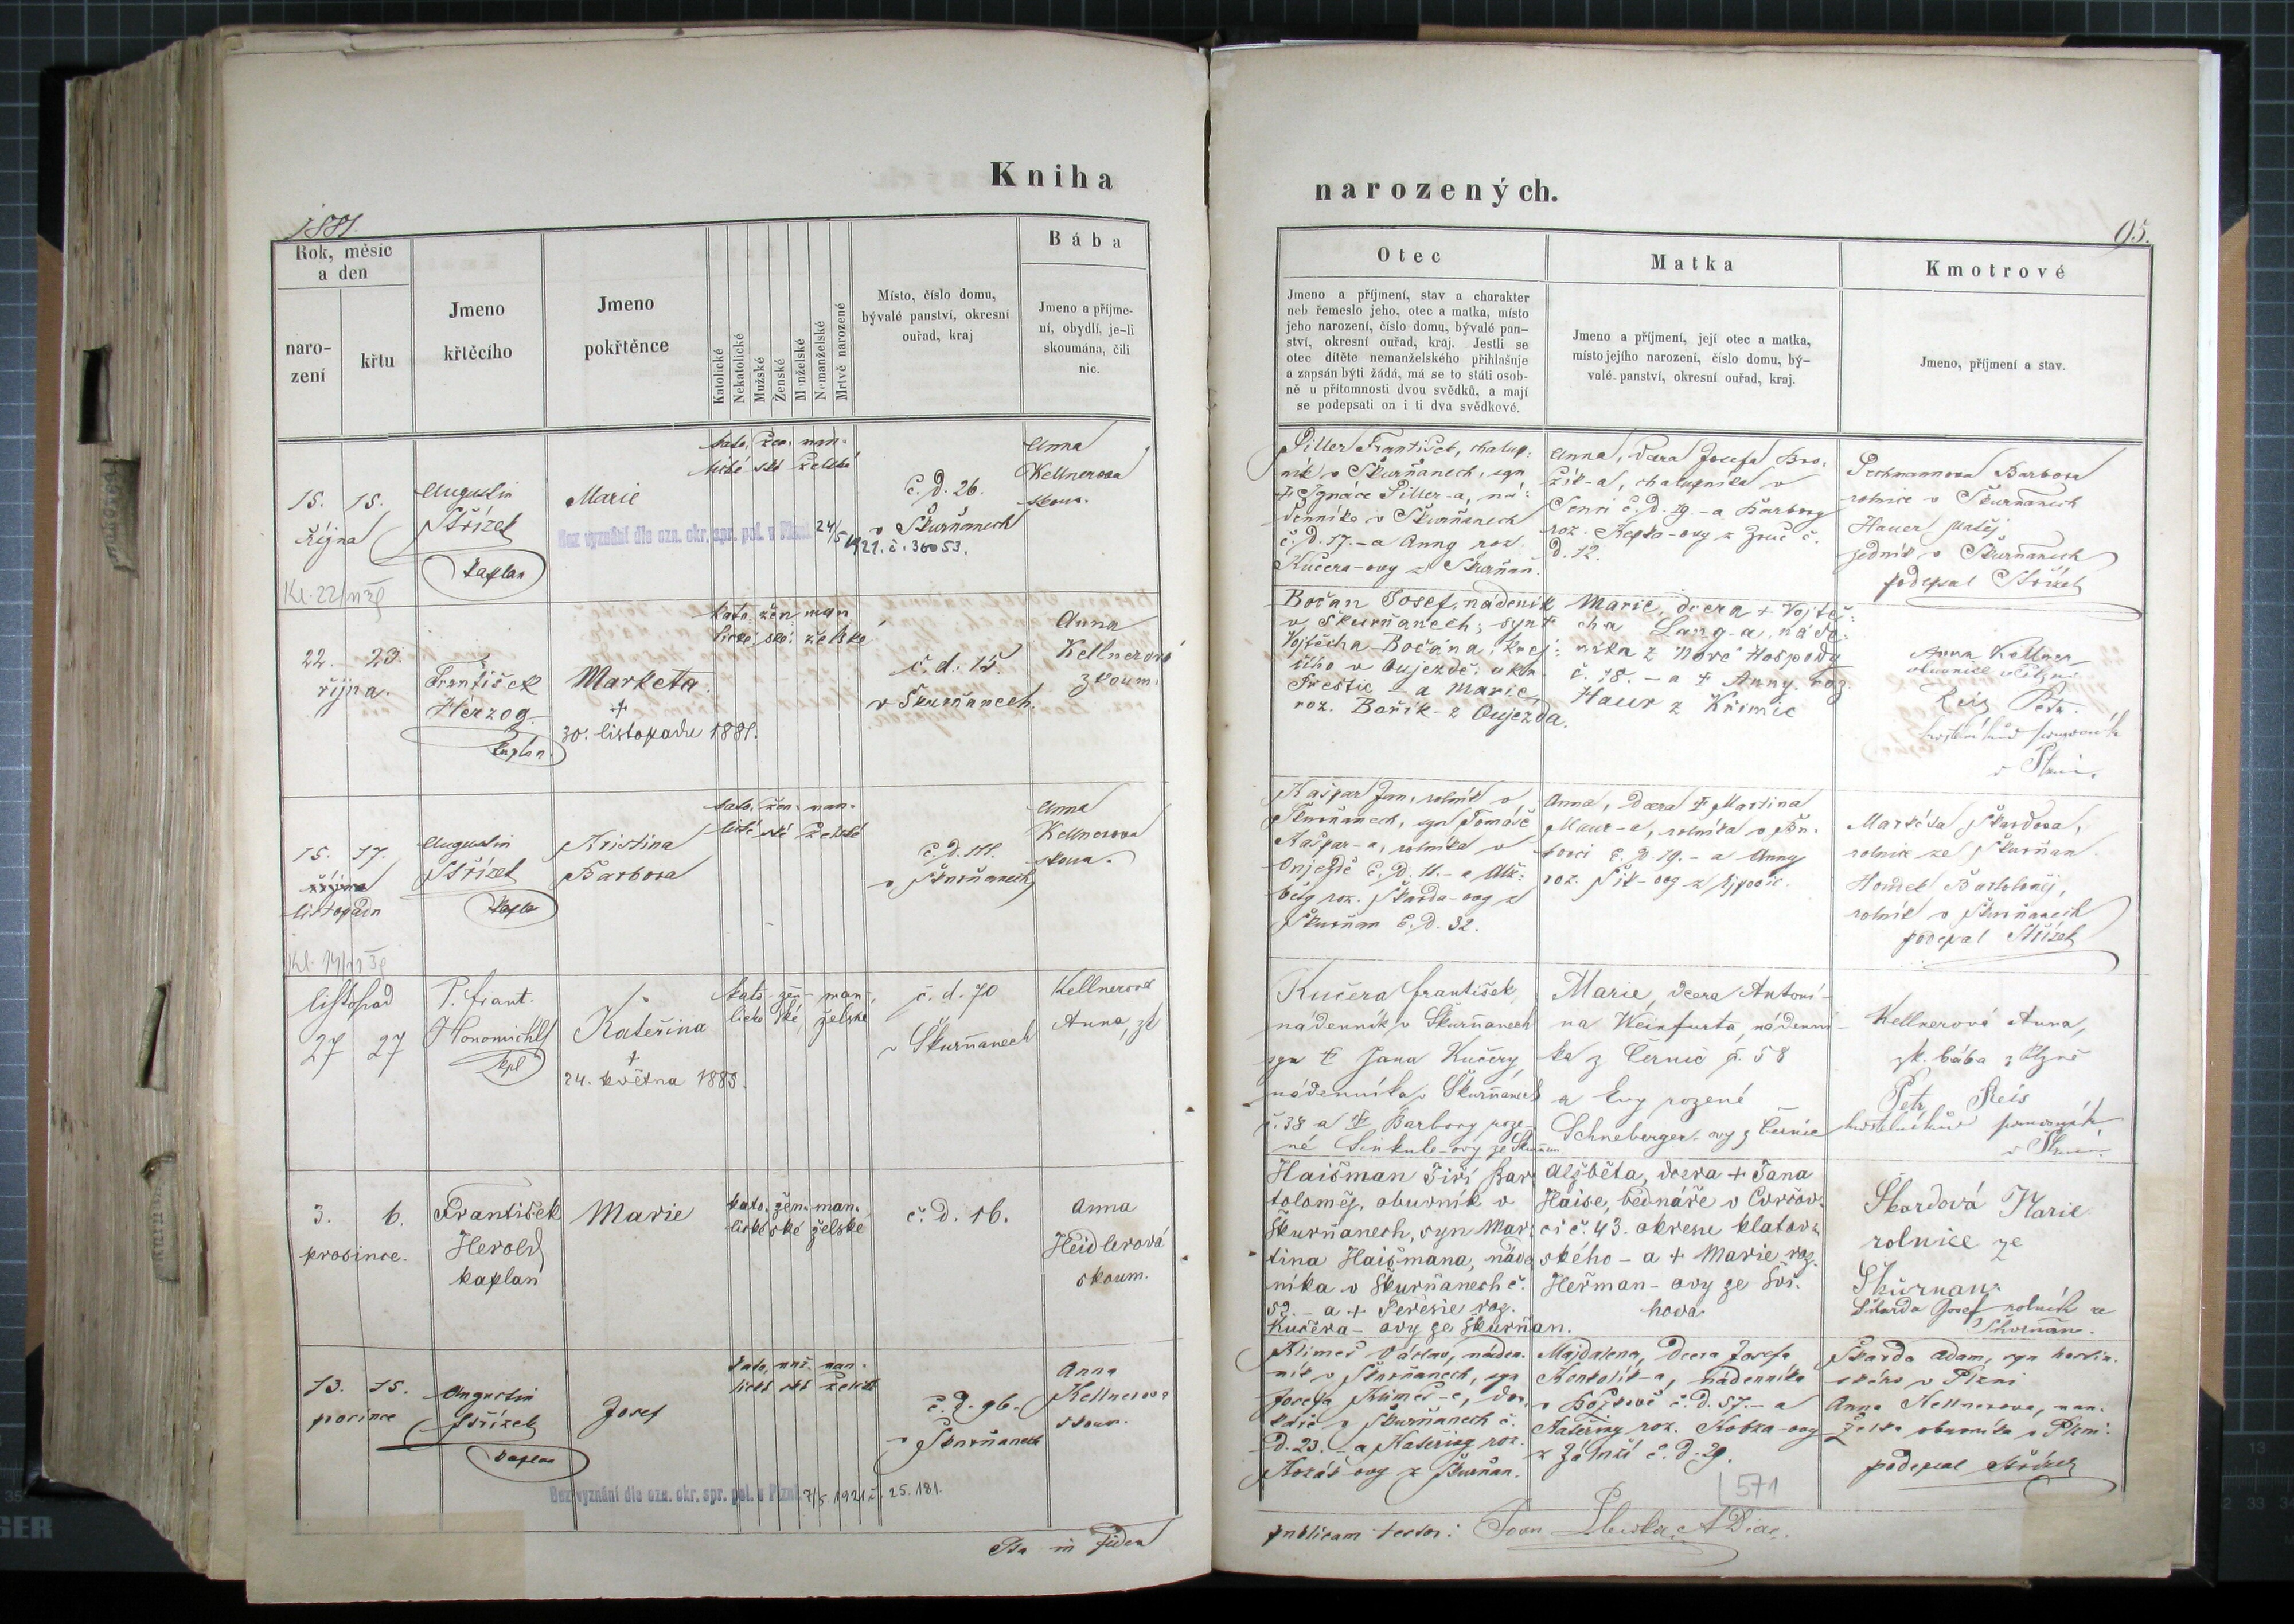 Kniha
1881.
Rok, měsíc
a den
naro-
zení
křtu
Jmeno
křtěcího
Jmeno
pokřtěnce
Katolické
Nekatolické
Mužské
Ženské
Manželské
Nemanželské
Mrtvě narozené
Místo, číslo domu,
bývalé panství, okresní
ouřad, kraj
Bába
Jmeno a příjme-
ní, obydlí, je-li
skoumána, čili
nic.
15. 15.
října
Augustin
Střízek
kaplan
Marie
kato. žen. man-
lické ské želské
Č. d. 26.
v Škurňanech
Anna
Kellnerova
skou.
Bez vyznání dle ozn. okr. spr. pol. v Plzni 24/5 1921. č. 36053.
22. 23.
října.
František
Herzog.
kaplan.
Marketa.
+
30. listopadu 1881.
kato- žen man
lické ské. želské
č. d. 15.
v Škurňanech.
Anna
Kellnerová
zkoum.
15. 17.
října
listopadu
Augustin
Střízek
Kristina
Barbora
kato. žen. man-
lické ské želské
v Škurňanech
Anna
Kellnerova
skou.
listopad
27 27
P. Frant.
Honomichl
kpl
Kateřina
+
24. května 1883.
kato- žen- man-
lické ské, želské
č. d. 70
v Škurňanech
Kellnerová
Anna, zk
3. 6.
prosince.
František
Herold
kaplan
Marie
kato- žen- man-
lické ské želské
č. d. 16.
Anna
Heidlerová
skoum.
13. 15.
prosince
Augustin
Střízek
kaplan
Josef
kato. muž. man-
lické ské želské
č. d. 96.
v Škurňanech
Anna
Kellnerova
skou.
Bez vyznání dle ozn. okr. spr. pol. v Plzni 7/5. 1921 č. 25.181.
Ita in fidem
narozených.
95.
Otec
Jmeno a příjmení, stav a charakter
neb řemeslo jeho, otec a matka, místo
jeho narození, číslo domu, bývalé pan-
ství, okresní ouřad, kraj. Jestli se
otec dítěte nemanželského přihlašuje
a zapsán býti žádá, má se to státi osob-
ně u přítomnosti dvou svědků, a mají
se podepsati on i ti dva svědkové.
Matka
Jmeno a příjmení, její otec a matka,
místo jejího narození, číslo domu, bý-
valé panství, okresní ouřad, kraj.
Kmotrové
Jmeno, příjmení a stav.
Piller František, chalup-
ník v Škurňanech, syn
+ Ignáce Piller-a, ná-
denníka v Škurňanech
č. d. 17. - a Anny roz.
Kučera-ovy z Škurňan.
Anna, dcera Josefa Bro-
žík-a, chalupníka v
č. d. 19. - a Barbory
roz. Řepka-ovy z Zruč č.
d. 12.
Pechmannova Barbora
rolnice v Škurňanech
Hauer Matěj
v Škurňanech
podepsal Střízek
Bočan Josef, nádeník
v Škurňanech, syn +
Vojtěcha Bočána, krej-
čího v Oujezdě, okr.
Přestic - a Marie
roz. Bořík- z Oujezda.
Marie, dcera + Vojtě-
cha Lang-a, náde-
níka z Nové Hospody
č. 18. - a + Anny. roz.
Haur z Křimic
Anna Kellner
obuvnice v Plzni
Reis Petr.
kostelníkův pomocník
v Plzni.
Kašpar Jan, rolník v
Škurňanech, syn Tomáše
Kašpar-a, rolníka v
Oujezdě č. d. 11. - a Alž-
běty roz. Škarda-ovy z
Škurňan č. d. 32.
Anna, dcera + Martina
Maur-a, rolníka v
č. d. 19. - a Anny
Markéta Škardova,
rolnice ze Škurňan
Bartoloměj,
rolník v Škurňanech
podepsal Střízek
Kučera František
nádenník v Škurňanech
syn + Jana Kučery,
nádenníka v Škurňanech
č. 38 a + Barbory roze-
né Sinkule-ovy ze Škurňan
Marie, dcera Antoní-
na Weinfurta, nádenní-
ka z Černic č. 58
a Evy rozené
Schneberger-ovy z Černic
Kellnerová Anna,
zk. bába z Plzně
Petr Reis
kostelníkův pomocník
v Plzni.
Haišman Jiří Bar-
toloměj, obuvník v
Škurňanech, syn Mar-
tina Haišmana, náde-
níka v Škurňanech č.
59. - a + Terezie roz.
Kučera- ovy ze Škurňan.
Alžběta, dcera + Jana
Haise, bednáře v
ci č. 43. okresu klatov-
ského - a + Marie roz.
Heřman- ovy ze
hova
Škardová Marie
rolnice ze
Škurňan.
Škarda Josef rolník ze
Škurňan.
Klimeš Václav, náden-
ník v Škurňanech, syn
Josefa Klimeš-e,
v Škurňanech č.
d. 23. - a Kateřiny roz.
Kozák-ovy z Škurňan.
Majdalena, dcera Josefa
nádenníka
č. d. 57. - a
Kateřiny roz. Kobza-ovy
č. d. 29.
Škarda Adam, syn hostin-
ského v Plzni
Anna Kellnerova, man-
želka obuvníka v Plzni.
podepsal Střízek
571